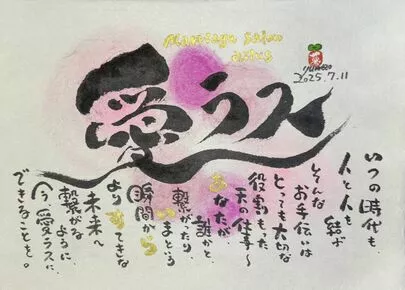 marriage salon
愛ラス
2025.7.11
いつの時代も、
人と人を
結ぶ
そんな
お手伝いは
とっても大切な
役割もった
天の仕事〜
あなたが、
誰かと
繋がったり、
いまという
瞬間から
よりすてきな
未来へ
繋がる
ように
今、愛ラスに、
できることを。